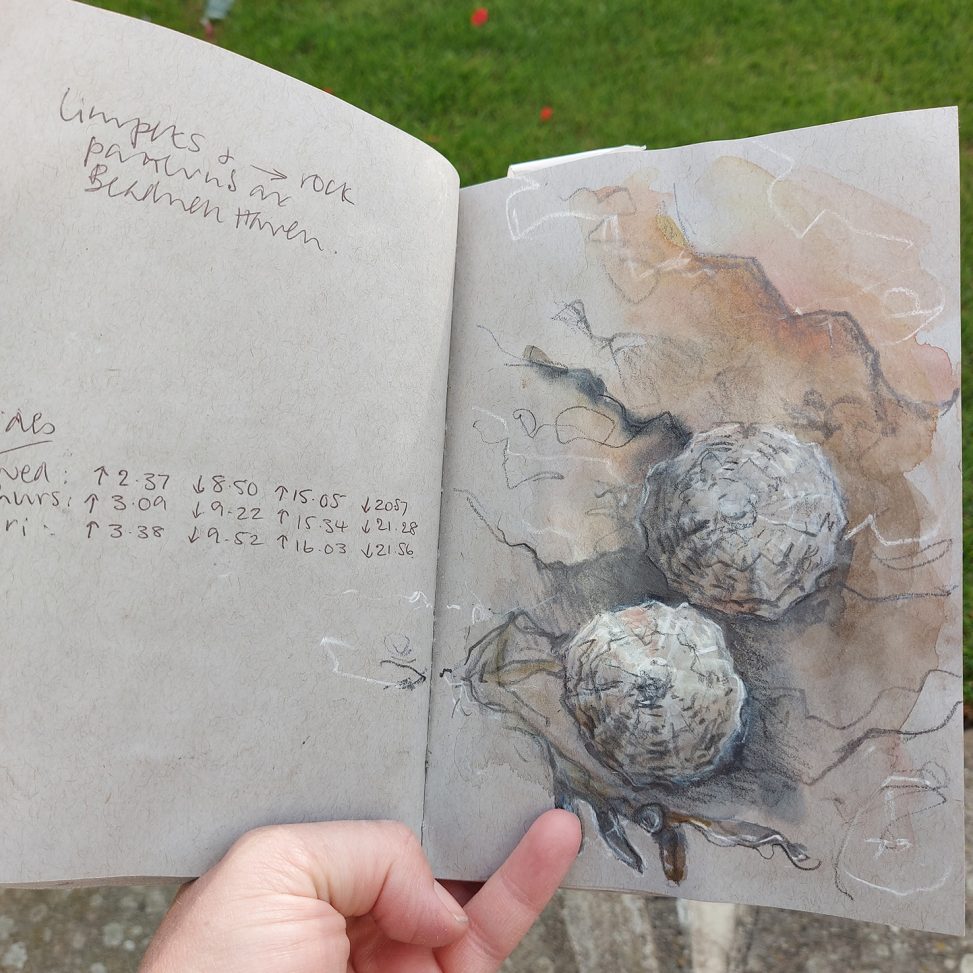 Limpets & → rock
patterns at
Beadnell Haven.
ides
wed: ↑2.37 ↓8.50 ↑15.05 ↓2057
hurs: ↑3.09 ↓9.22 ↑15.34 ↓21.28
ri: ↑3.38 ↓9.52 ↑16.03 ↓21.56